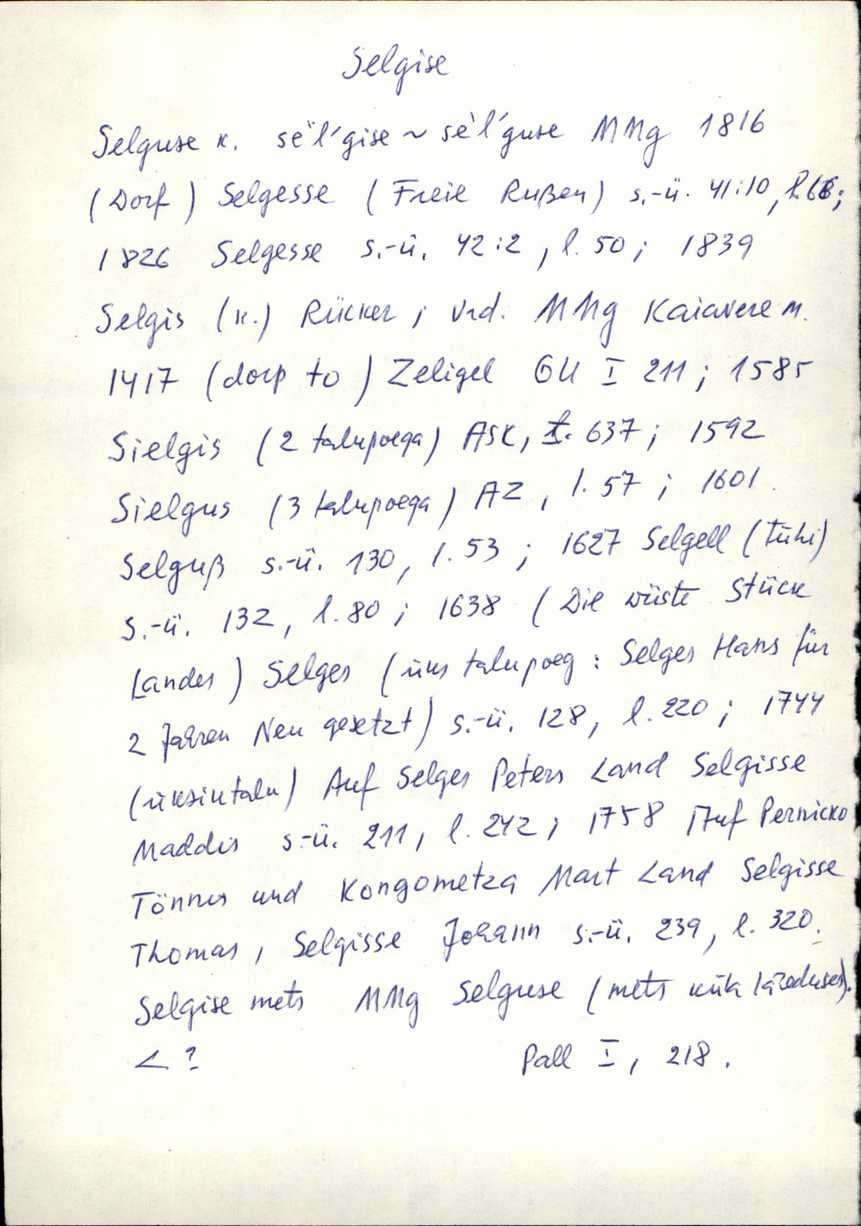 Selgise
Selguse k. se`l´gise ~ se`l´guse MMg 1816
(Dorf) Selgesse (Freie Rußen) s.-ü. 41:10, l.
1826 Selgesse s.-ü. 42:2, l. 50; 1839
Selgis (k.) Rücker; vrd. MMg Kaiavere m.
1417 (dorp to) Zeligel GU I 211; 1585
Sielgis (2 talupoega) ASK, 637; 1592
Sielgus (3 talupoega) AZ, l. 57; 1601.
Selguß s.-ü. 130, l. 53; 1627 Selgell (tühi)
s.-ü. 132, l. 80; 1638 (Die wüste Stück
Landes) Selges (üks talupoeg: Selges Hans für
2 Jahren Neu gesetzt) s.-ü. 128, l. 220; 1744
(üksiktalu) Auf Selges Peters Land Selgisse
Maddis s.-ü. 211, l. 242; 1758 Auf Pernicko
Tönnis und Kongometza Mart Land Selgisse
Thomas, Selgisse Johann s.-ü. 239, l. 320.
Selgise mets MMg Selguse (mets küla läheduses).
< ? Pall I, 218.